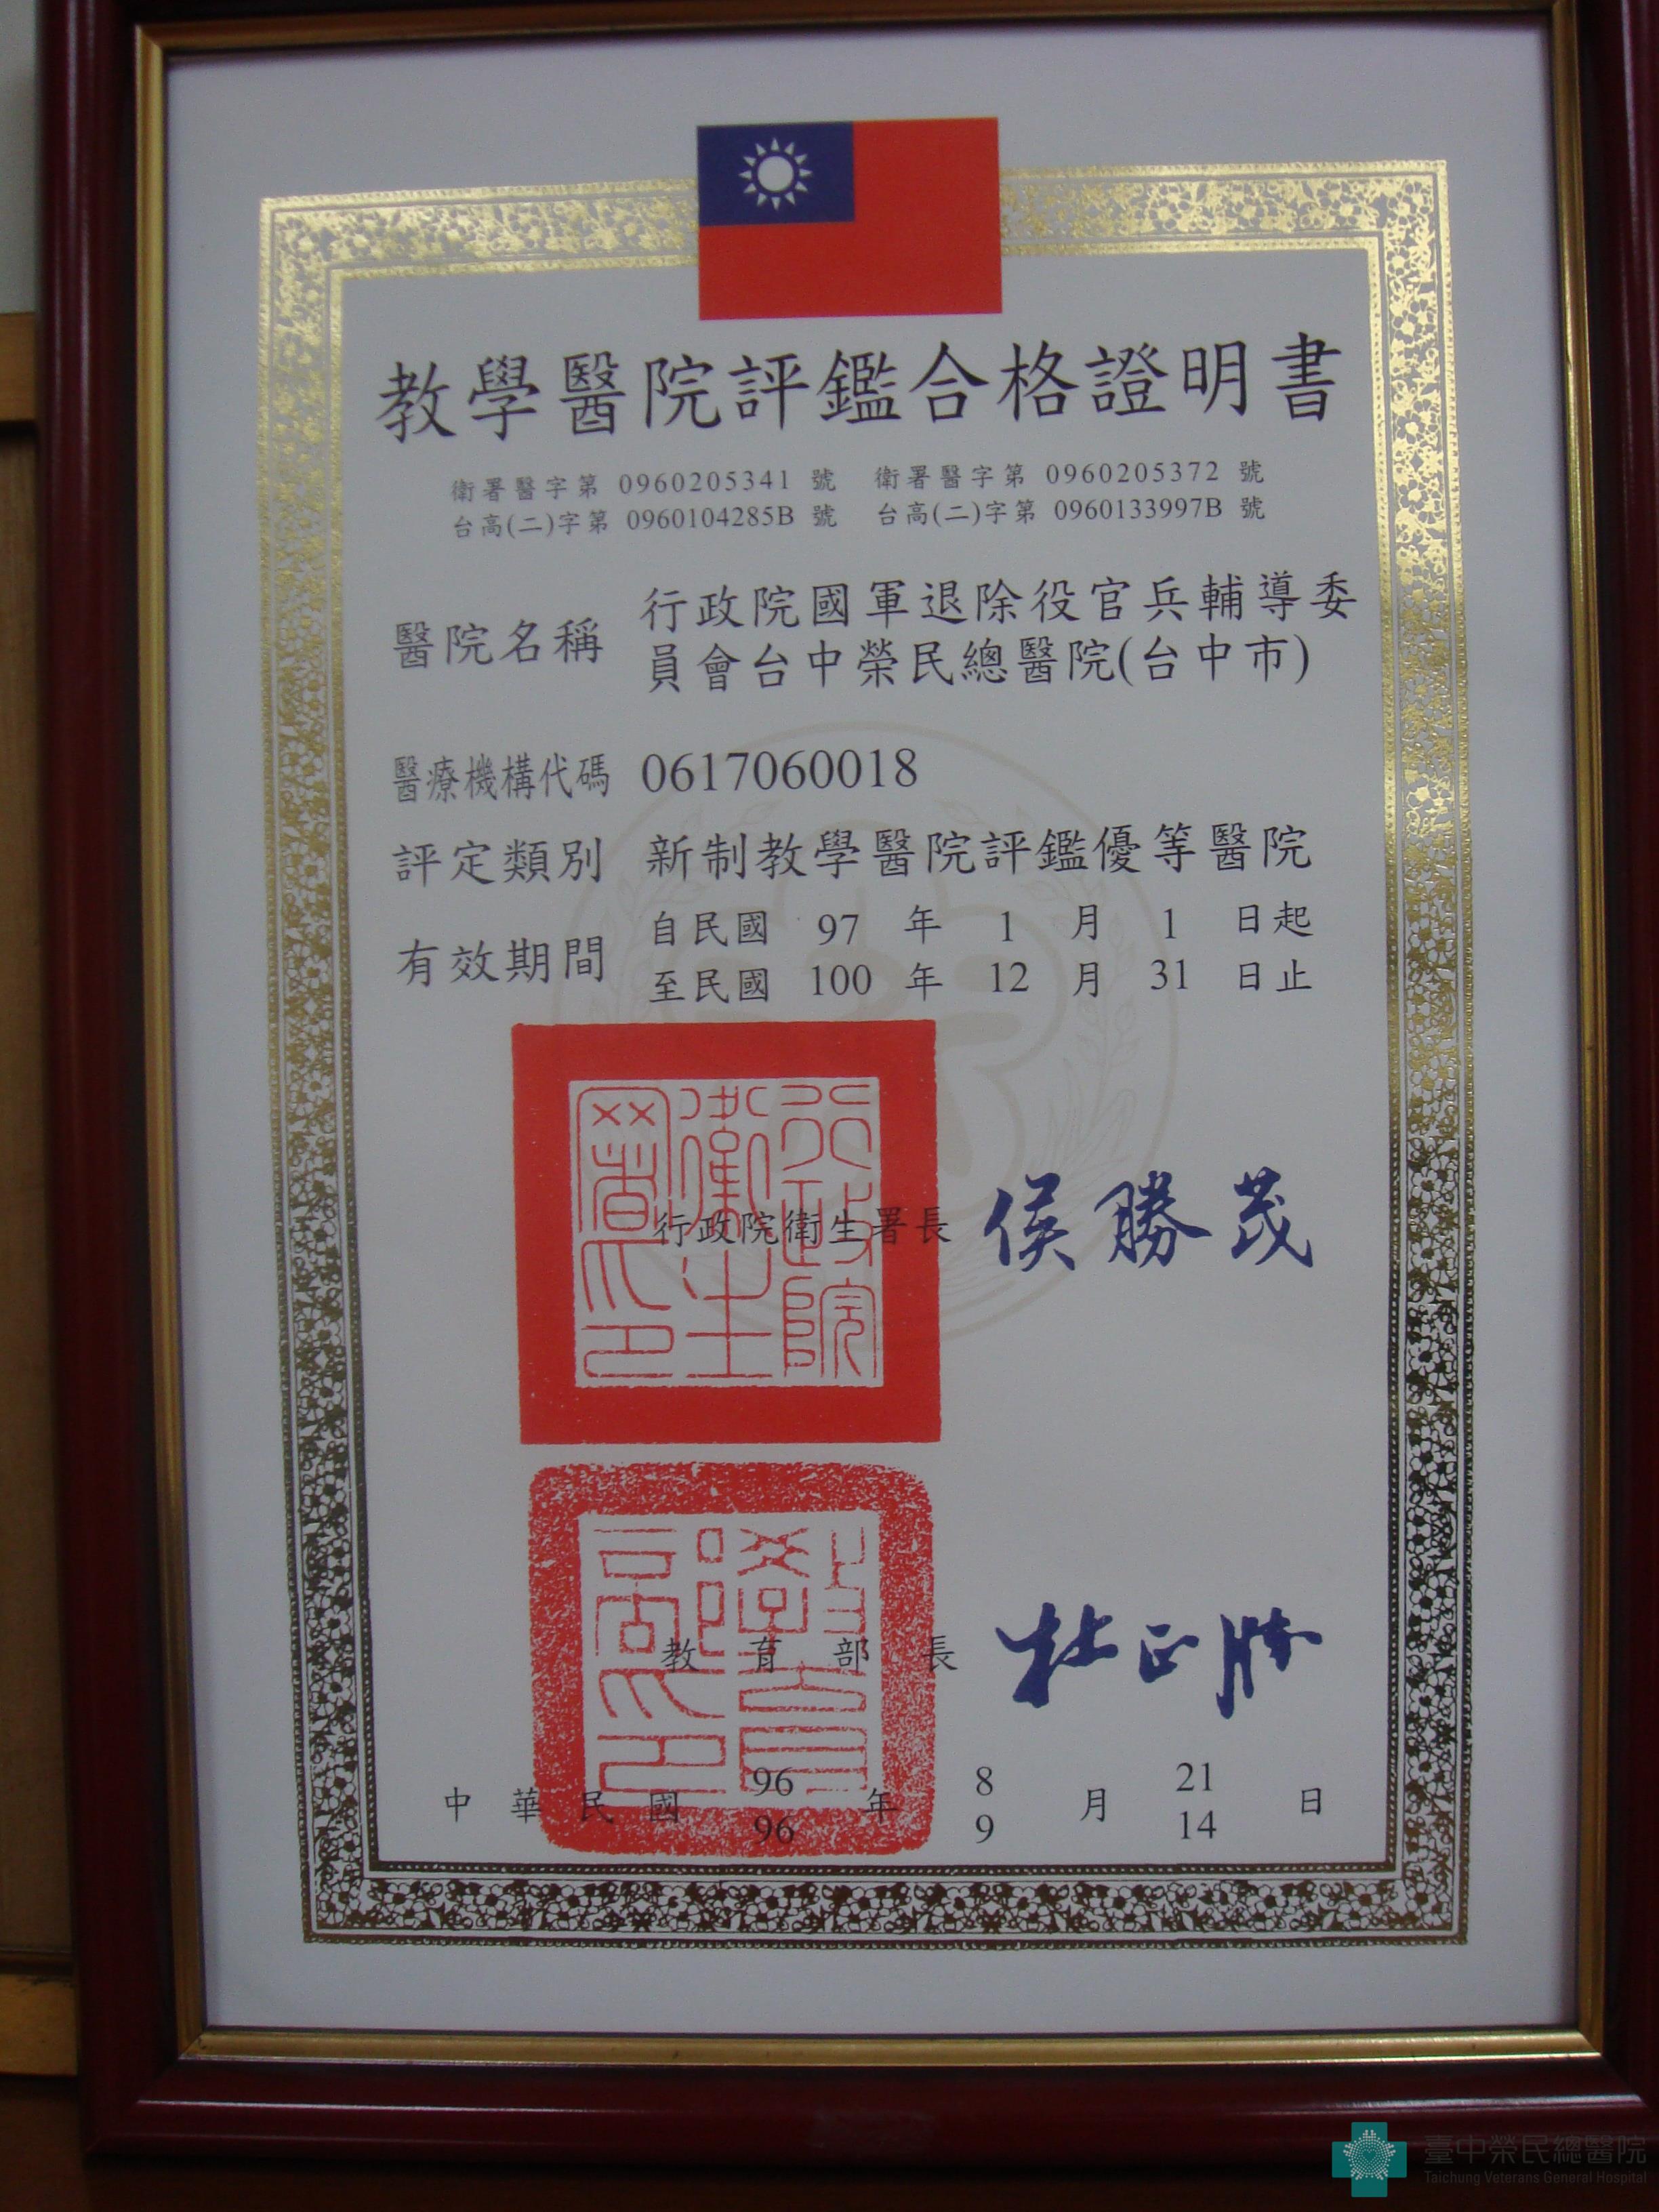 教學醫院評鑑合格證明書
衛署醫字第 0960205341 號 衛署醫字第 0960205372 號
台高(二)字第 0960104285B 號 台高(二)字第 0960133997B 號
醫院名稱 行政院國軍退除役官兵輔導委
員會台中榮民總醫院(台中市)
醫療機構代碼 0617060018
評定類別 新制教學醫院評鑑優等醫院
有效期間 自民國 97 年 1 月 1 日起
至民國 100 年 12 月 31 日止
行政院衛生署印
行政院衛生署長 侯勝茂
教育部印
教育部長 杜正勝
中華民國 96 年 8 月 21 日
96 9 14
臺中榮民總醫院
Taichung Veterans General Hospital